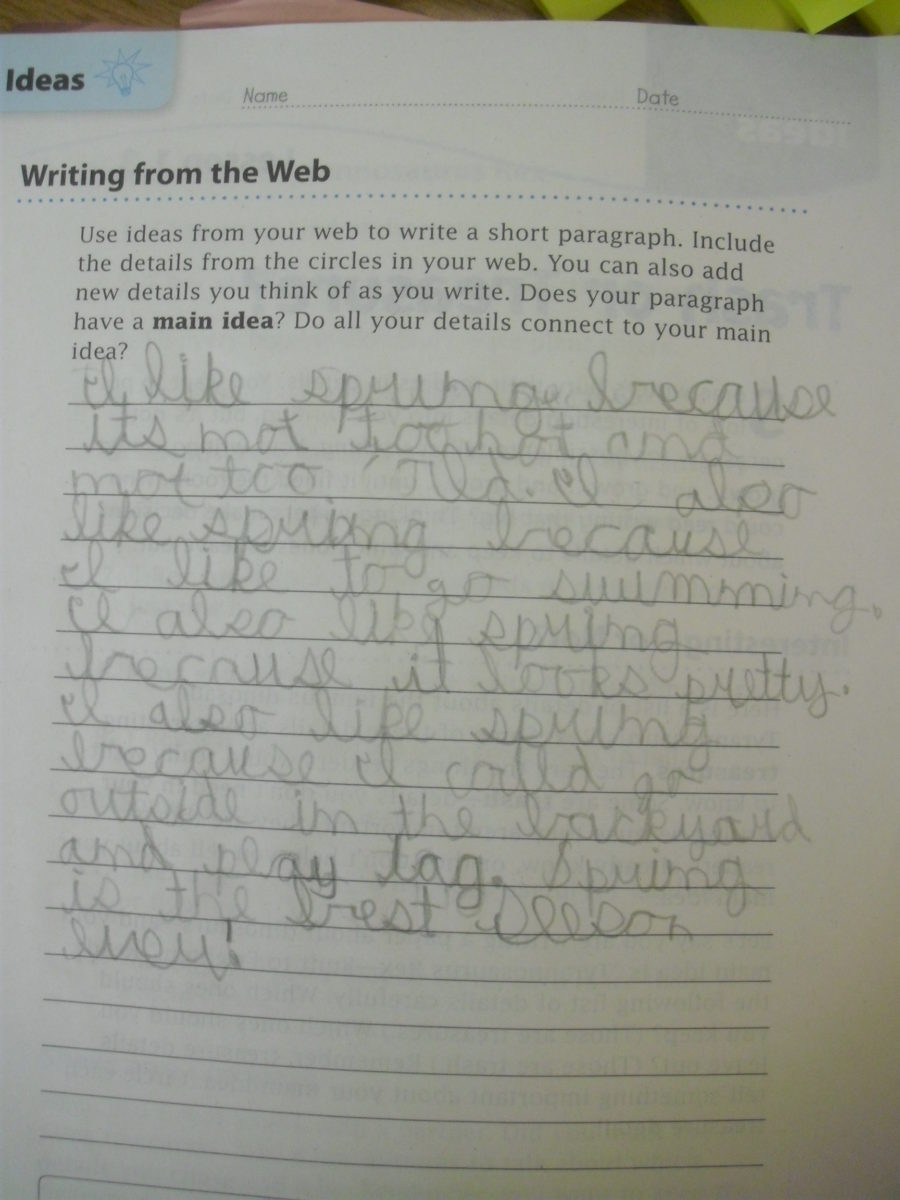 Ideas
Name Date
Writing from the Web
Use ideas from your web to write a short paragraph. Include
the details from the circles in your web. You can also add
new details you think of as you write. Does your paragraph
have a main idea? Do all your details connect to your main
idea?
I like spring because
its not too hot and
not too cold. I also
like spring because
I like to go swimming.
I also like spring
because it looks pretty.
I also like spring
because I could go
outside in the backyard
and play tag. Spring
is the best seeson
ever!